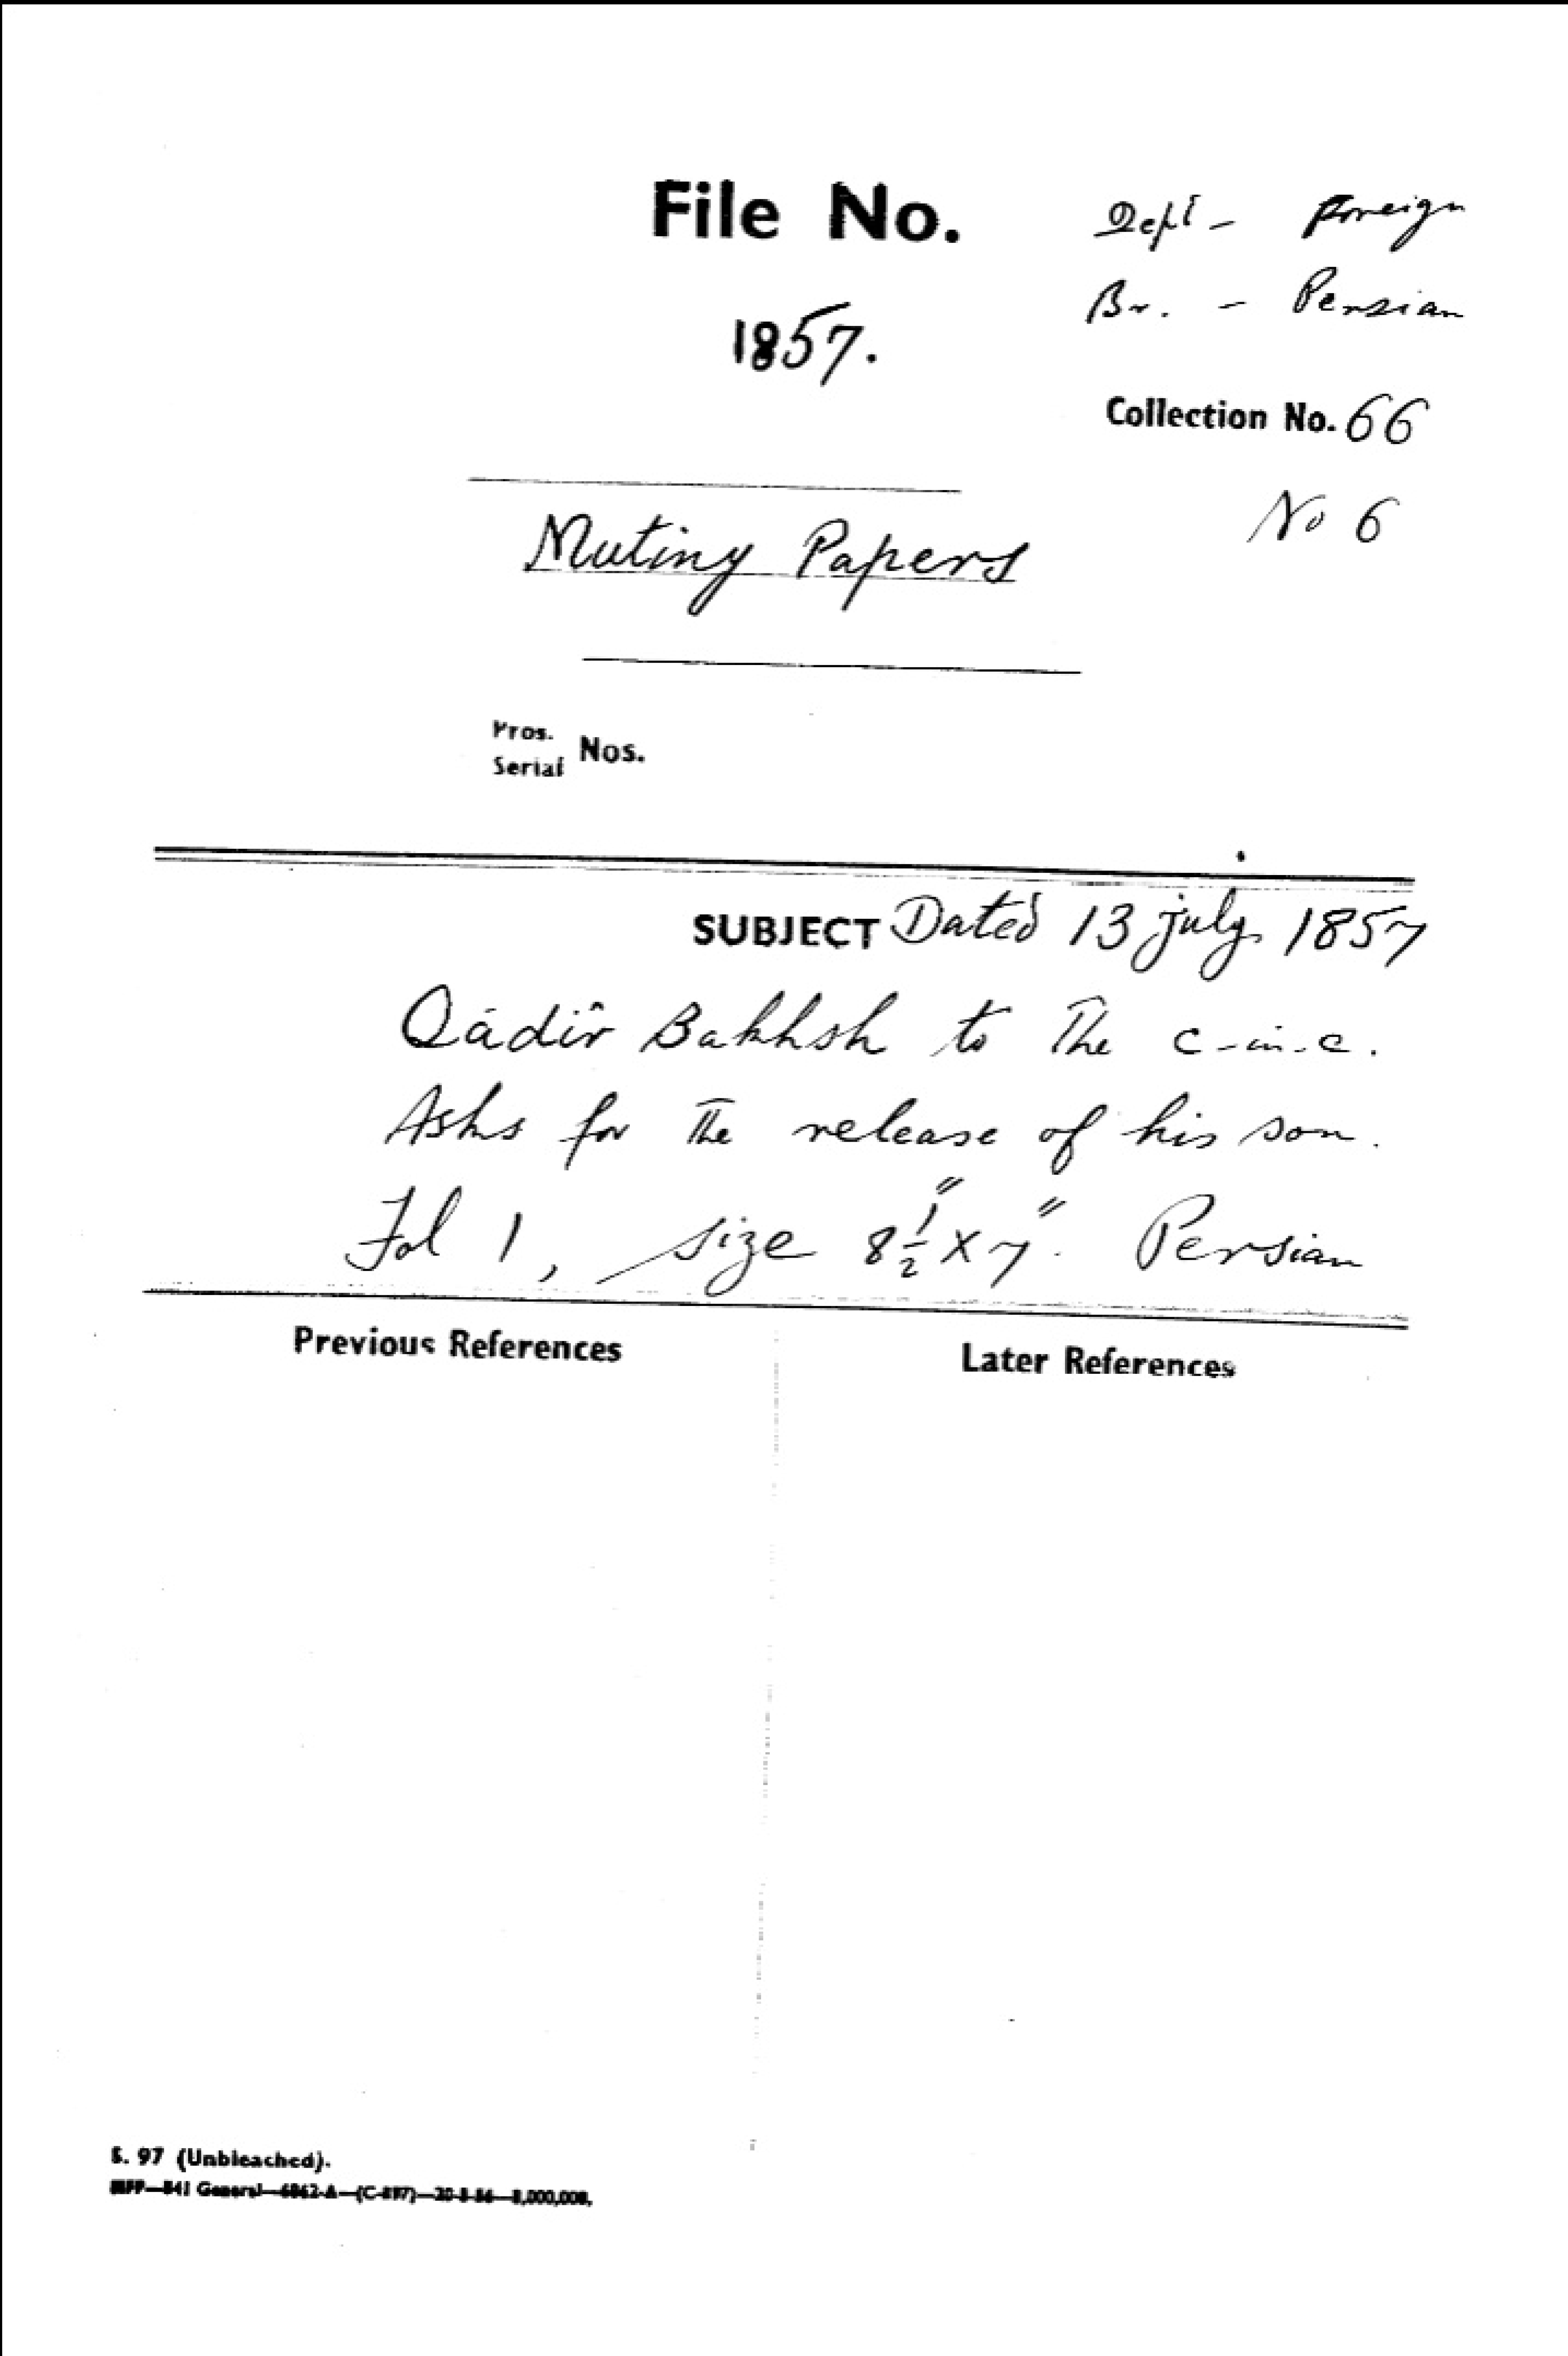 File No.
Deptt - Foreign
1857.
Br. - Persian
Collection No. 66
No 6
Mutiny Papers
Pros.
Serial Nos.
SUBJECT Dated 13 july 1857
Qádir Bakhsh to The C-in-C.
Asks for The release of his son.
Fol 1, size 8½" x 7". Persian
Previous References
Later References
S. 97 (Unbleached).